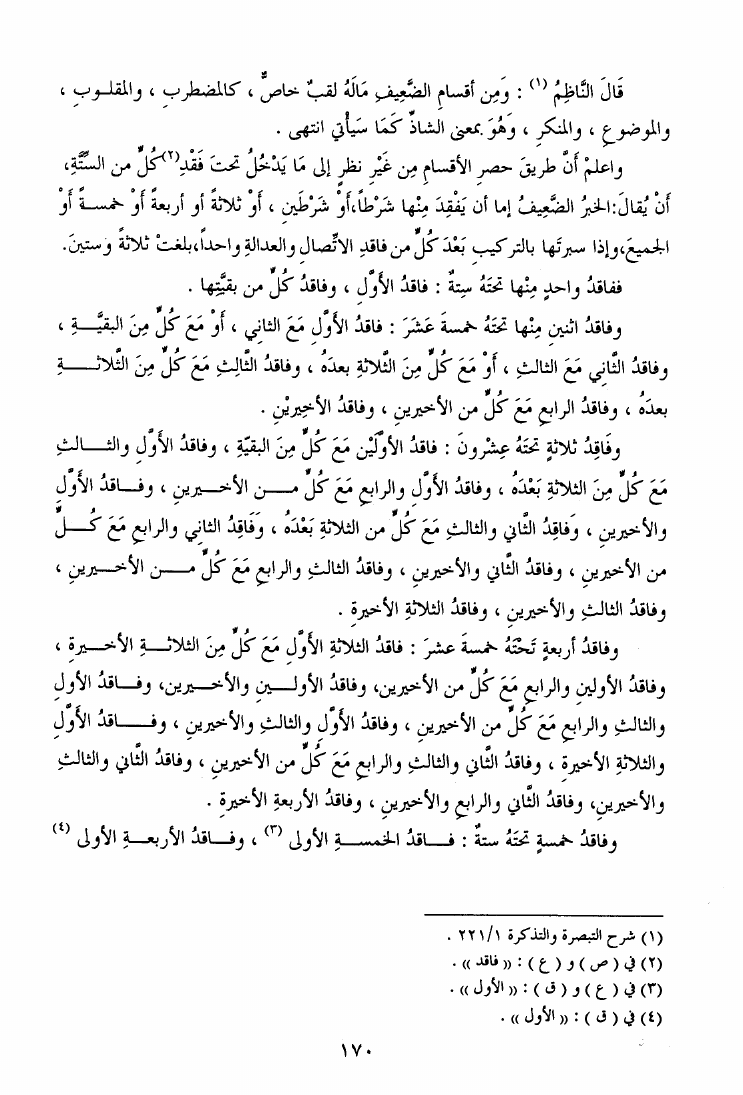 قَالَ النَّاظِمُ (١) : وَمِن أقسامِ الضَّعِيفِ مَالَهُ لقبٌ خاصٌّ ، كالمضطربِ ، والمقلــوبِ ،
والموضوعِ ، والمنكرِ ، وَهُوَ بمعنى الشاذِّ كَمَا سيأتي انتهى .
واعلمْ أنَّ طريقَ حصرِ الأقسامِ مِن غَيْرِ نظرٍ إلى مَا يَدْخُلُ تحتَ فَقْدِ(٢) كُلٍّ من السِّتَّةِ،
أنْ يُقالَ:الخبرُ الضَّعيفُ إما أن يَفْقِدَ مِنْها شَرْطاً،أَوْ شَرْطَينِ ، أَوْ ثلاثةً أو أربعةً أَوْ خمســةً أَوْ
الجميعَ،وإذا سبرتَها بالتركيبِ بَعْدَ كُلٍّ من فاقدِ الاتِّصالِ والعدالةِ واحداً،بلغتْ ثلاثةً وستينَ.
ففاقدُ واحدٍ مِنْها تحتَهُ ستةٌ : فاقدُ الأوَّلِ ، وفاقدُ كُلٍّ من بقيَّتِها .
وفاقدُ اثنينِ مِنْها تحتَهُ خمسةَ عَشَرَ : فاقدُ الأوَّلِ مَعَ الثاني ، أَوْ مَعَ كُلٍّ مِنَ البقيَّــةِ ،
وفاقدُ الثَّاني مَعَ الثالثِ ، أَوْ مَعَ كُلٍّ مِنَ الثَّلاثةِ بعدَهُ ، وفاقدُ الثَّالِثِ مَعَ كُلٍّ مِنَ الثَّلاثــــةِ
بعدَهُ ، وفاقدُ الرابعِ مَعَ كُلٍّ من الأخيرينِ ، وفاقدُ الأخِيريْنِ .
وفَاقِدُ ثلاثةٍ تحتَهُ عِشْرونَ : فاقدُ الأوَّلَيْن مَعَ كُلٍّ مِنَ البقيّةِ ، وفاقدُ الأوَّلِ والثــــالثِ
مَعَ كُلٍّ مِنَ الثلاثةِ بَعْدَهُ ، وفاقدُ الأوَّلِ والرابعِ مَعَ كُلٍّ مــــن الأخــــيرينِ ، وفــاقدُ الأوَّلِ
والأخيرينِ ، وفَاقِدُ الثَّاني والثالثِ مَعَ كُلٍّ من الثلاثةِ بَعْدَهُ ، وَفَاقِدُ الثاني والرابعِ مَعَ كُــــلٍّ
من الأخيرينِ ، وفاقدُ الثَّاني والأخيرينِ ، وفاقدُ الثالثِ والرابعِ مَعَ كُلٍّ مــــن الأخــــيرينِ ،
وفاقدُ الثالثِ والأخيرينِ ، وفاقدُ الثلاثةِ الأخيرةِ .
وفاقدُ أربعةٍ تَحْتَهُ خمسةَ عشرَ : فاقدُ الثلاثةِ الأوَّلِ مَعَ كُلٍّ مِنَ الثلاثــةِ الأخــــيرةِ ،
وفاقدُ الأولينِ والرابعِ مَعَ كُلٍّ من الأخيرينِ، وفاقدُ الأولــينِ والأخــــيرينِ، وفــاقدُ الأولِ
والثالثِ والرابعِ مَعَ كُلٍّ من الأخيرينِ ، وفاقدُ الأوَّلِ والثالثِ والأخيرينِ ، وفــــاقدُ الأوَّلِ
والثلاثةِ الأخيرةِ ، وفاقدُ الثَّاني والثالثِ والرابعِ مَعَ كُلٍّ من الأخيرينِ ، وفاقدُ الثَّاني والثالثِ
والأخيرينِ، وفاقدُ الثَّاني والرابعِ والأخيرينِ ، وفاقدُ الأربعةِ الأخيرةِ .
وفاقدُ خمسةٍ تحتَهُ ستةٌ : فــــاقدُ الخمســــةِ الأولى (٣) ، وفــاقدُ الأربعــةِ الأولى (٤)
(١) شرح التبصرة والتذكرة ٢٢١/١ .
(٢) في ( ص ) و ( ع ) : « فاقد » .
(٣) في ( ع ) و ( ق ) : « الأول » .
(٤) في ( ق ) : « الأول » .
١٧٠